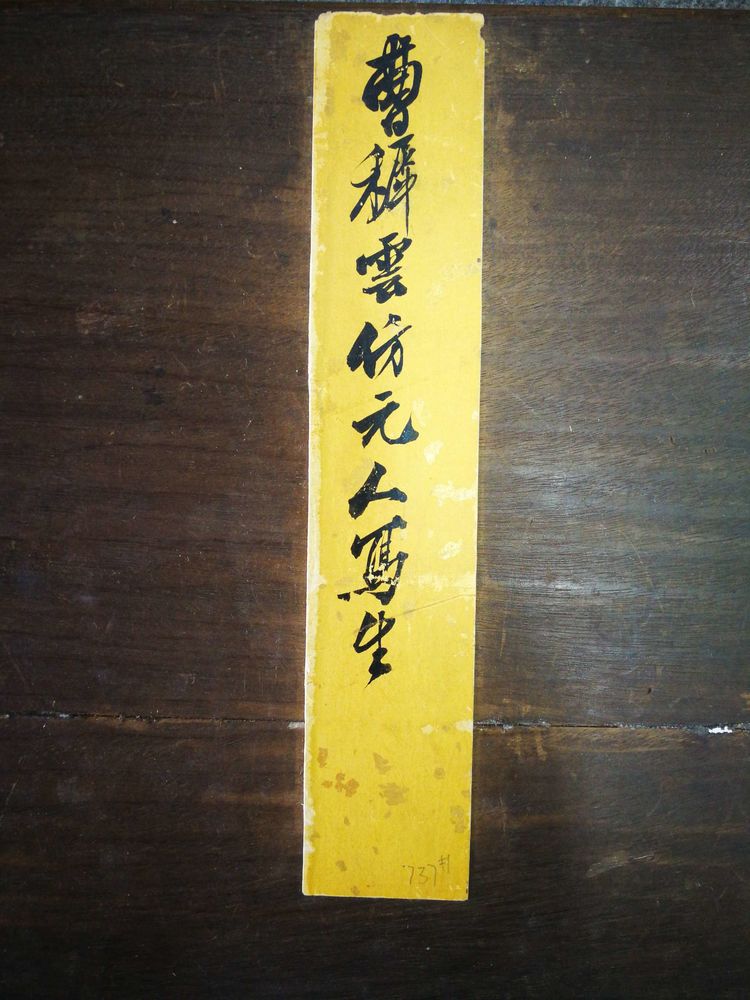 曹穉雲仿元人寫生
737#